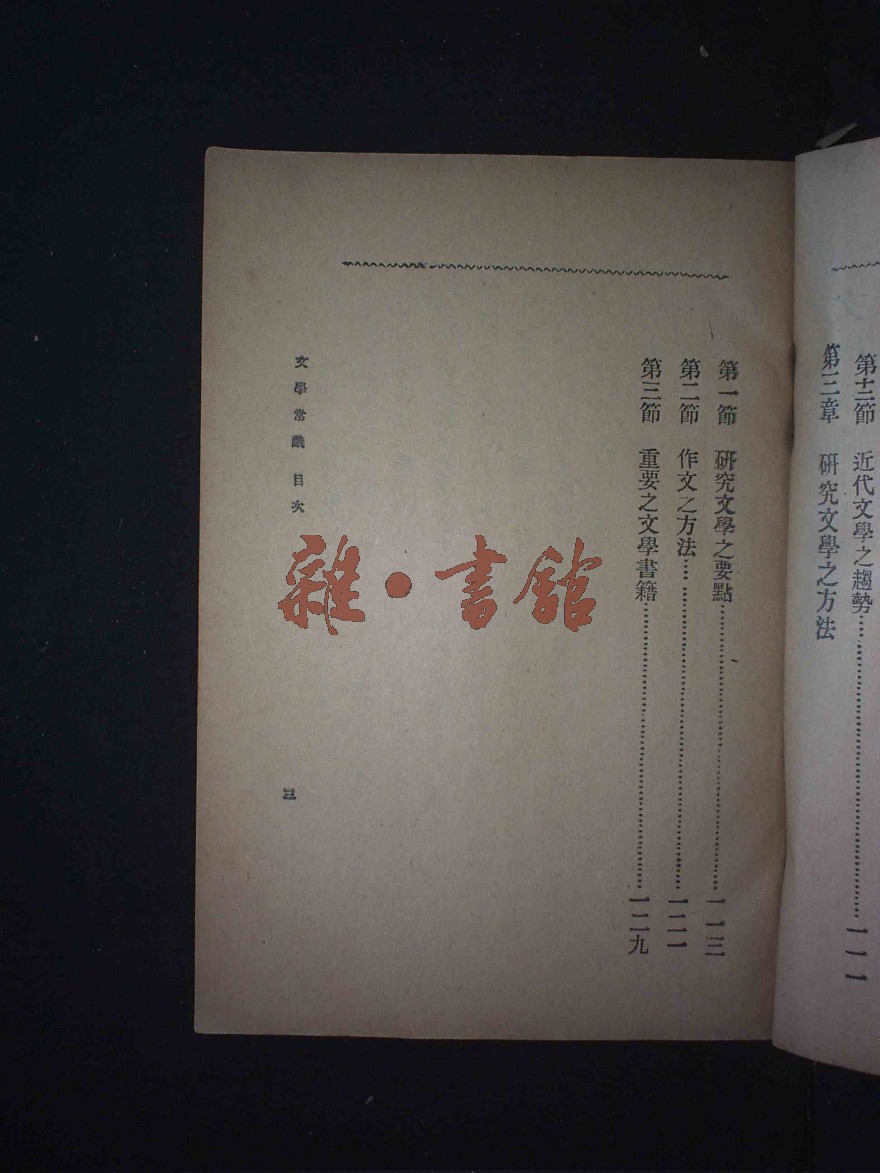 第十三節　近代文學之趨勢……一一一
第三章　研究文學之方法
第一節　研究文學之要點……一一三
第二節　作文之方法……一二一
第三節　重要之文學書籍……一二九
文學常識　目次
三
雜·書館